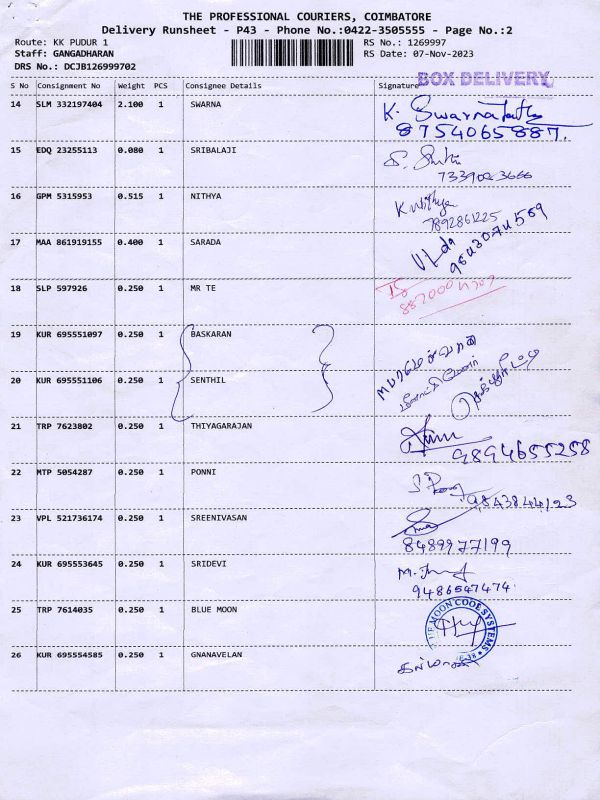 THE PROFESSIONAL COURIERS, COIMBATORE
Delivery Runsheet - P43 - Phone No.:0422-3505555 - Page No.:2
Route: KK PUDUR 1 RS No.: 1269997
Staff: GANGADHARAN RS Date: 07-Nov-2023
DRS No.: DCJB126999702
BOX DELIVERY
S No Consignment No Weight PCS Consignee Details Signature
14 SLM 332197404 2.100 1 SWARNA K.
8754065887.
15 EDQ 23255113 0.080 1 SRIBALAJI
16 GPM 5315953 0.515 1 NITHYA K Nithya
7892861225
17 MAA 861919155 0.400 1 SARADA
18 SLP 597926 0.250 1 MR TE
19 KUR 695551097 0.250 1 BASKARAN
20 KUR 695551106 0.250 1 SENTHIL
21 TRP 7623802 0.250 1 THIYAGARAJAN
9894655258
22 MTP 5054287 0.250 1 PONNI
9843844123
23 VPL 521736174 0.250 1 SREENIVASAN
8489977199
24 KUR 695553645 0.250 1 SRIDEVI
9486547474.
25 TRP 7614035 0.250 1 BLUE MOON
BLUE MOON CODE SYSTEMS
26 KUR 695554585 0.250 1 GNANAVELAN